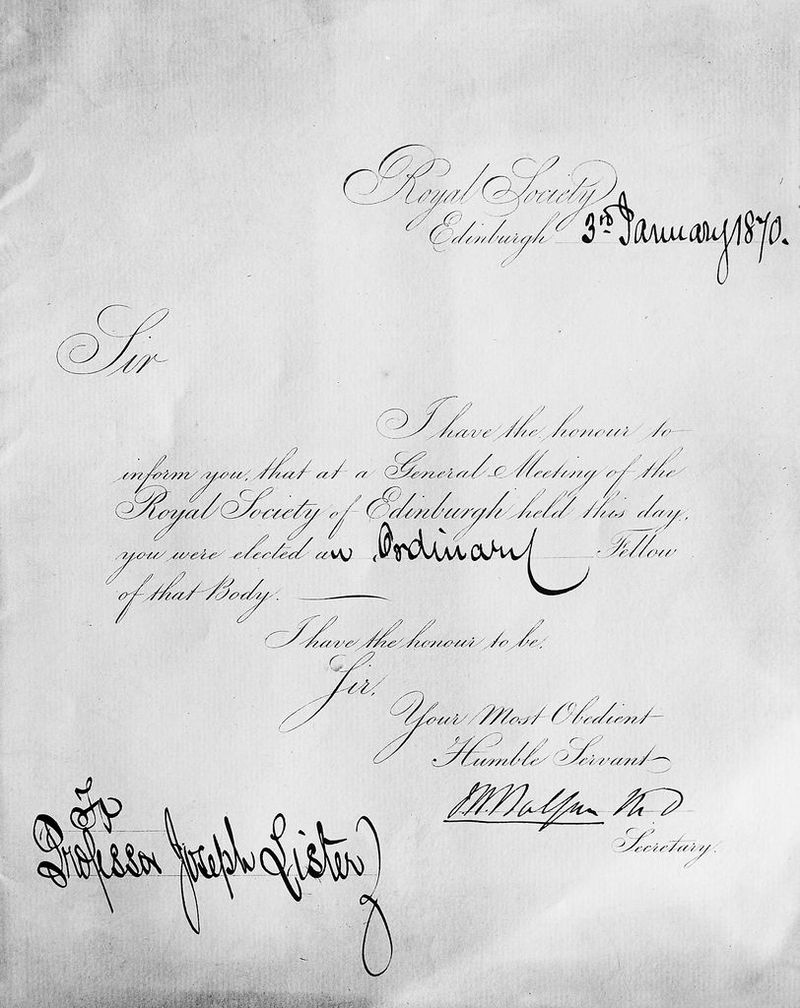 Royal Society
Edinburgh 3rd January 1870.
Sir
I have the honour to
inform you, that at a General Meeting of the
Royal Society of Edinburgh held this day,
you were elected an Ordinary Fellow
of that Body.
I have the honour to be,
Sir,
Your Most Obedient
Humble Servant
Secretary.
To
Professor Joseph Lister